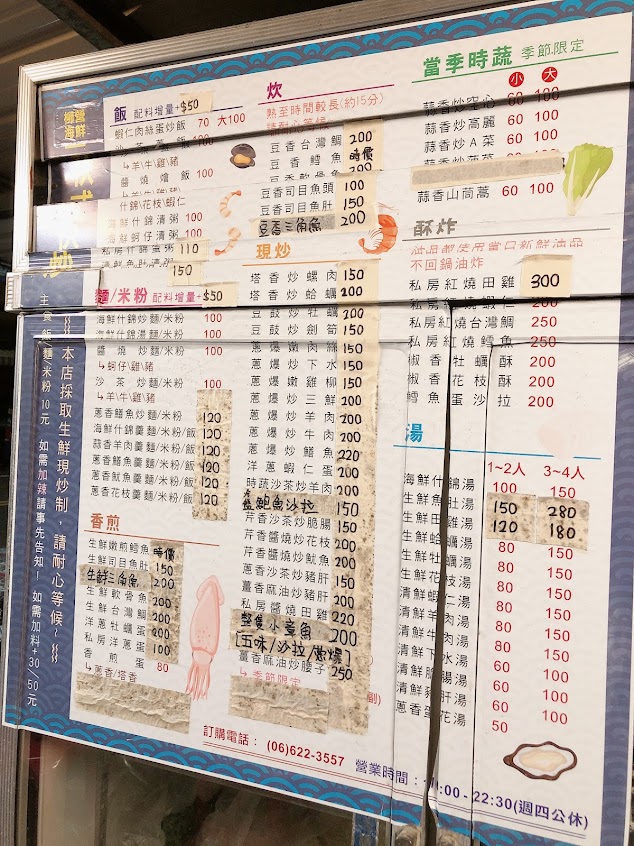 柳營
海鮮
飯 配料增量+$50
蝦仁肉絲蛋炒飯 70 大100
↳羊\牛\雞\豬
醬燒燴飯 100
什錦/花枝\蝦仁
海鮮什錦清粥 100
海鮮蚵仔清粥 100
110
150
麵/米粉 配料增量+$50
海鮮什錦炒麵/米粉 100
海鮮什錦湯麵/米粉 100
醬燒炒麵/米粉 100
↳蚵仔\雞\豬
沙茶炒麵/米粉 100
↳羊\牛\雞
蔥香鱔魚炒麵/米粉 120
海鮮什錦羹麵/米粉/飯 120
蒜香羊肉羹麵/米粉/飯 120
蔥香鱔魚羹麵/米粉/飯 120
蔥香魷魚羹麵/米粉/飯 120
蔥香花枝羹麵/米粉/飯 120
香煎
生鮮嫩煎鱈魚 時價
生鮮司目魚肚 150
生鮮三角魚 200
生鮮軟骨魚 200
生鮮台灣鯛 200
洋蔥牡蠣蛋 200
私房洋蔥蛋 100
香煎蛋 80
↳蔥香/塔香
炊
熟至時間較長(約15分)
請耐心等候
豆香台灣鯛 200
豆香鱈魚 時價
豆香司目魚頭 100
豆香司目魚肚 150
豆香三角魚 200
現炒
塔香炒螺肉 150
塔香炒蛤蠣 200
豆鼓炒牡蠣 200
豆鼓炒劍筍 150
蔥爆嫩肉絲 150
蔥爆炒下水 150
蔥爆嫩雞柳 150
蔥爆炒三鮮 200
蔥爆炒羊肉 200
蔥爆炒牛肉 200
蔥爆炒鱔魚 220
洋蔥蝦仁蛋 200
時蔬沙茶炒羊肉 150
鮑魚沙拉 150
芹香沙茶炒脆腸 150
芹香醬炒花枝 200
芹香醬燒炒魷魚 200
芹香沙茶炒豬肝 150
薑香麻油炒豬肝 200
私房醬燒田雞 220
整隻小章魚 200
[五味/沙拉/蔥爆]
薑香麻油炒腰子 250
↳季節限定
當季時蔬 季節限定
小 大
蒜香炒空心 60 100
蒜香炒高麗 60 100
蒜香炒A菜 60 100
蒜香山茼蒿 60 100
酥炸
油品都使用當日新鮮油品
不回鍋油炸
私房紅燒田雞 300
私房紅燒蝦仁 200
私房紅燒台灣鯛 250
私房紅燒鱈魚 250
椒香牡蠣酥 200
椒香花枝酥 200
鱈魚蛋沙拉 200
湯
1~2人 3~4人
海鮮什錦湯 100 150
生鮮魚肚湯 150 280
生鮮田雞湯 120 180
生鮮蛤蠣湯 80 150
生鮮牡蠣湯 80 150
生鮮花枝湯 80 150
清鮮蝦仁湯 80 150
清鮮羊肉湯 80 150
清鮮牛肉湯 80 150
清鮮下水湯 60 100
清鮮脆腸湯 60 100
清鮮豬肝湯 60 100
蔥香蛋花湯 50 100
主食 飯/麵/米粉 10元 如需加辣請事先告知! 如需加料+30/50元
本店採取生鮮現炒制,請耐心等候~
訂購電話: (06)622-3557
營業時間: :00 - 22:30(週四公休)